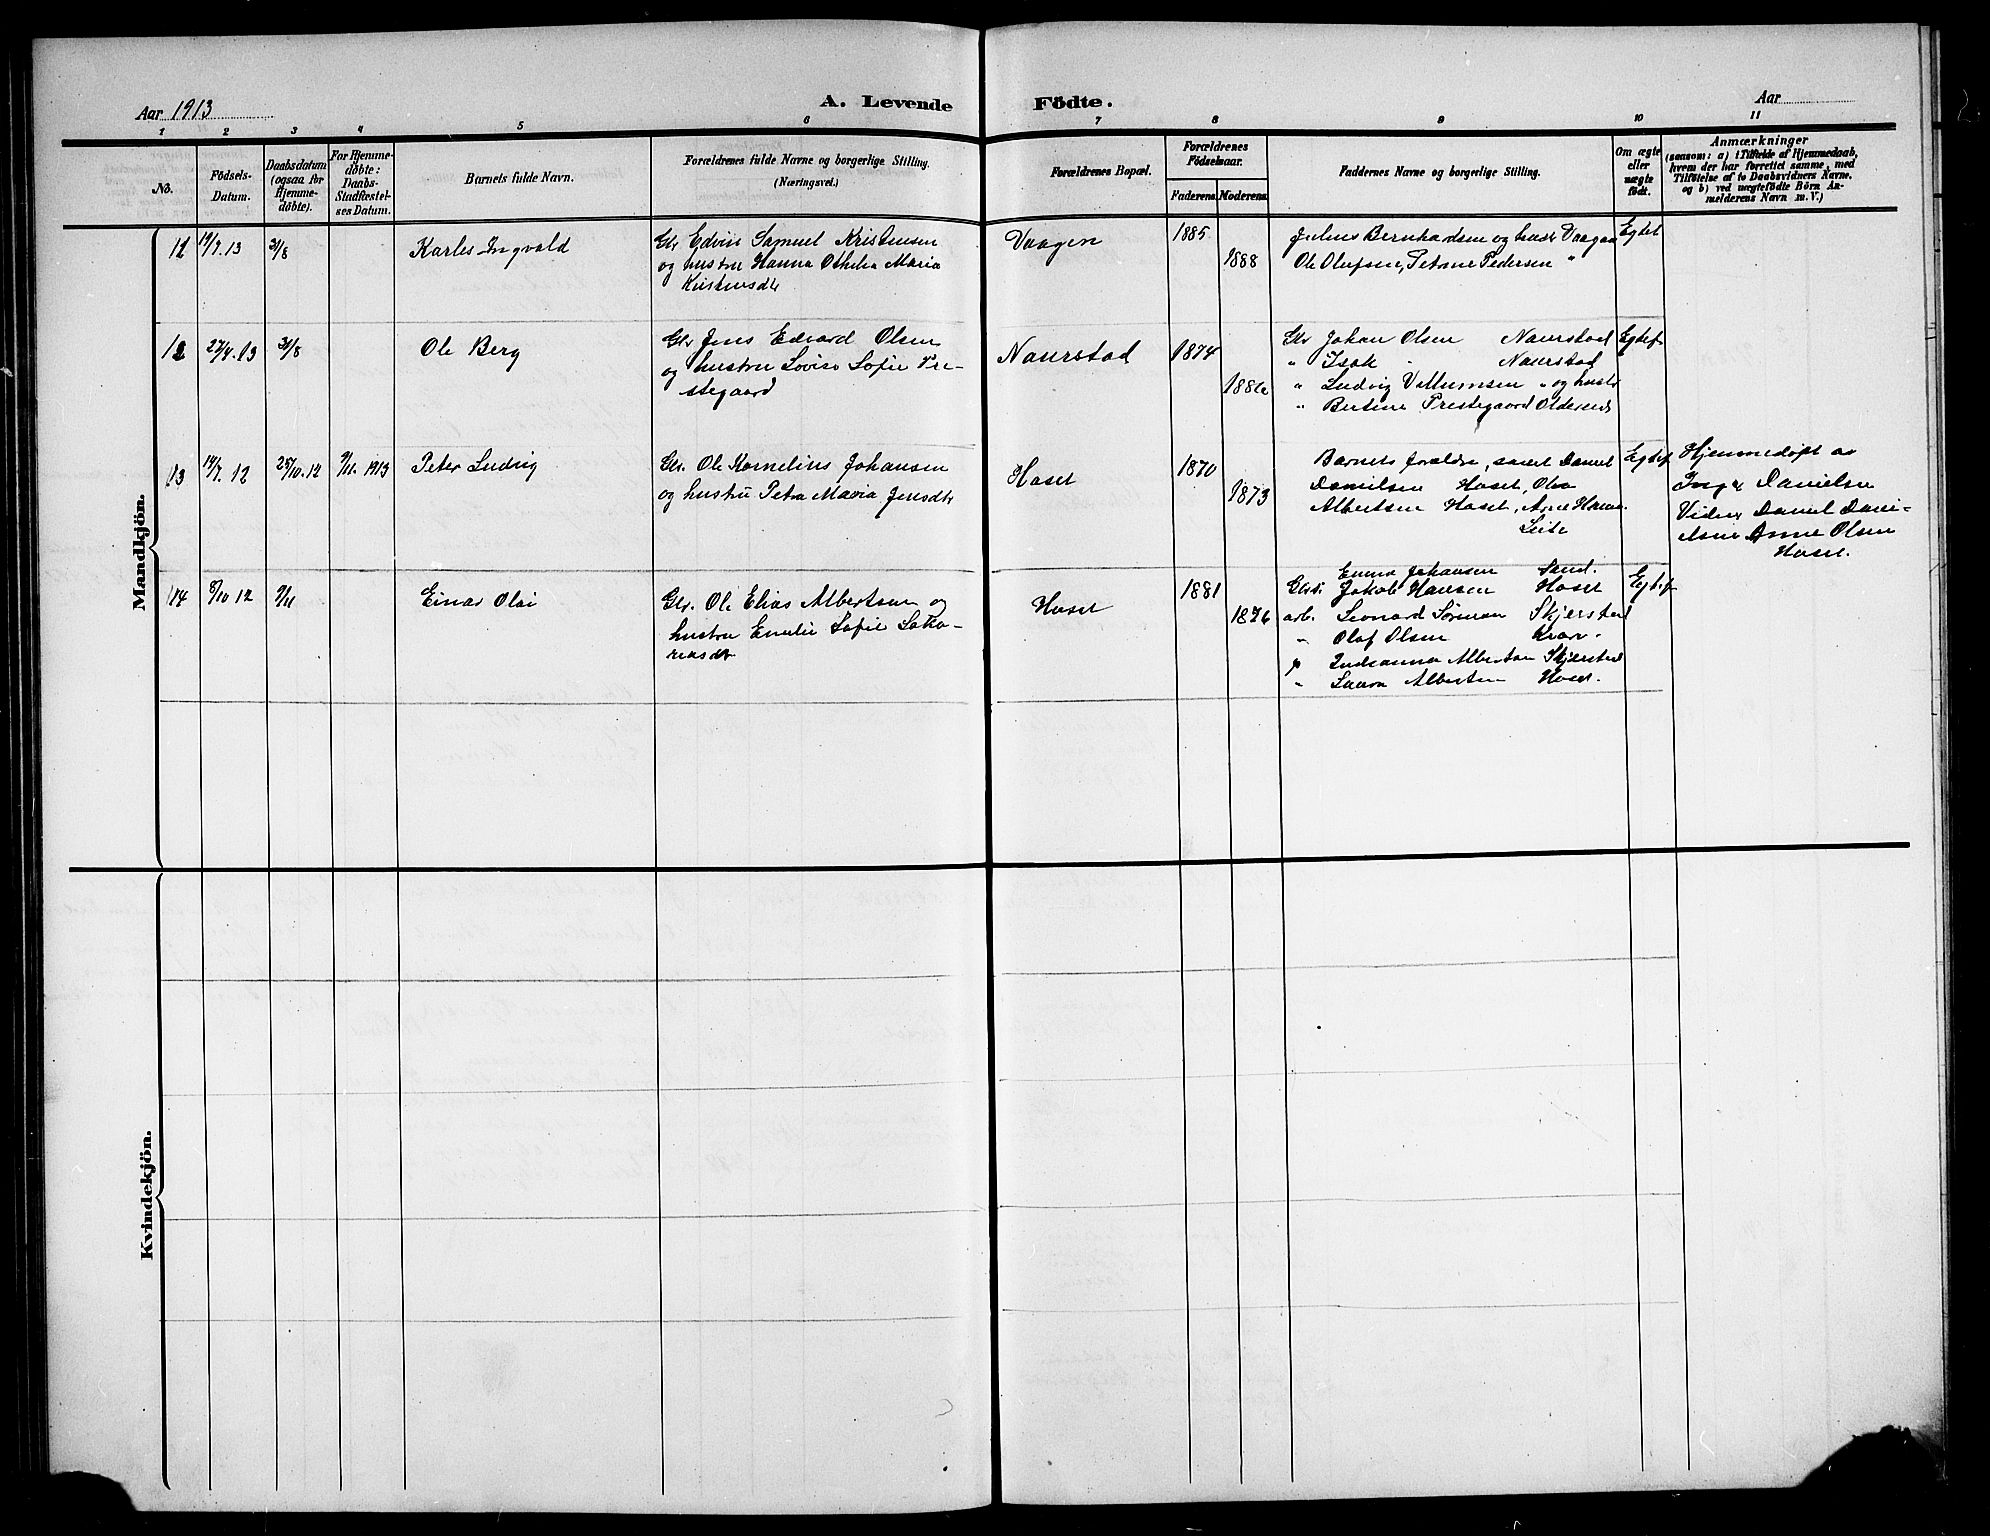 Aar 1913
A. Levende
Födte.
Aar
1 2 3 4 5 6 7 8 9 10 11
No.
Födsels-
Datum.
Daabsdatum
(ogsaa for
Hjemme-
döbte).
For Hjemme-
döbte:
Daabs-
Stadfæstel-
ses Datum.
Barnets fulde Navn.
Forældrenes fulde Navne og borgerlige Stilling.
(Næringsvei.)
Forældrenes Bopæl.
Forældrenes
Födselsaar.
Faderens. Moderens.
Faddernes Navne og borgerlige Stilling.
Om ægte
eller
uægte
födt.
Anmærkninger
(saasom: a) i Tilfælde af Hjemmedaab,
hvem der har forrettet samme, med
Tilföielse af to Daabsvidners Navne,
og b) ved uægtefödte Börn An-
melderens Navn m. V.)
Mandkjön.
11 19/7. 13 31/8 Karles Ingvald
Gbr Edvin Samuel Kristensen
og hustru Hanna Othilia Maria
Kristensdtr
Vaagen
1885
1888
Julius Bernhardsen og hustr Vaagan
Ole Olufsen, Petrine Pedersen "
Egtef
12 27/4. 13 31/8 Ole Berg
Gbr Jens Edvard Olsen
og hustru Lovise Sofie Pre-
stegaard
Naurstad
1874
Gbr Johan Olsen Naurstad
" Isak " Naurstad
" Ludvig Villumsen " og hustr
" Bertine Prestegaard
Egtef
13 14/7. 12 25/10. 12 9/11. 1913 Peter Ludvig
Gbr. Ole Kornelius Johansen
og hustru Petra Maria Jensdtr
Hoset
1870
1873
Barnets foreldre, samt Daniel
Danielsen Hoset,
Albertsen Hoset,
Egtef
Hjemmedøpt av
Danielsen
Vidner Daniel Dani-
elsen Anne Olsen
Hoset.
14 8/10 12 9/11 Einar Olai
Gbr. Ole Elias Albertsen og
hustru Emelie Sofie Saka-
riasdtr
Hoset
1881
1876
Emma Johansen Sand.
Jakob Hansen Hoset
arb. Leonard Sørensen Skjerstad
" Olof Olsen
Albertsen Skjerstad
" Laura Albertsen Hoset.
Egtef
Kvindekjön.